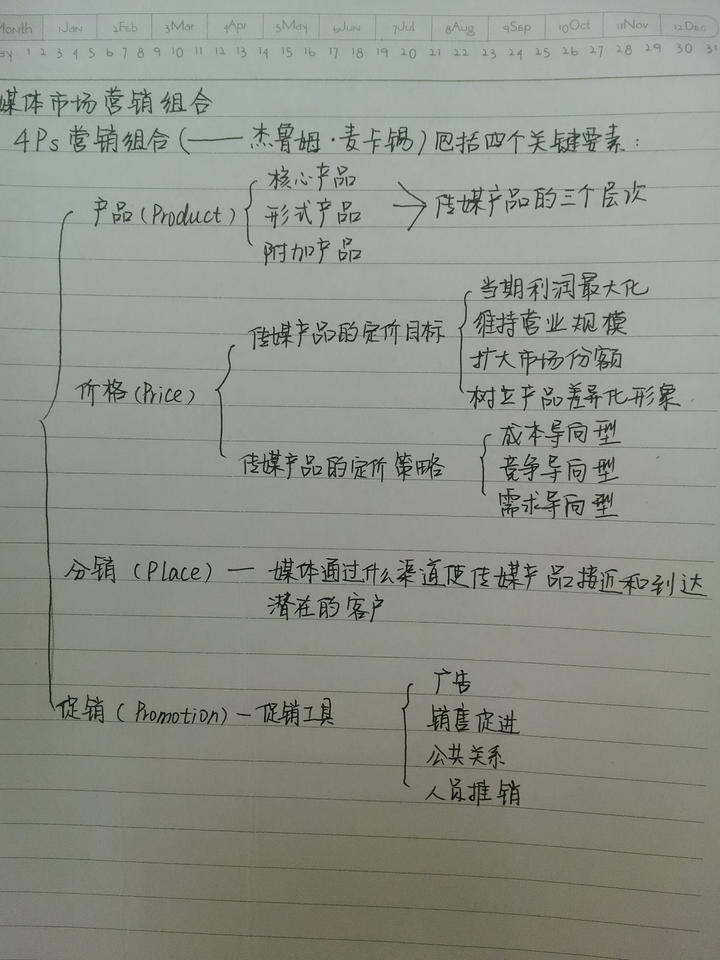 Month 1Jan 2Feb 3Mar 4Apr 5May 6Jun 7Jul 8Aug 9Sep 10Oct 11Nov 12Dec
ay 1 2 3 4 5 6 7 8 9 10 11 12 13 14 15 16 17 18 19 20 21 22 23 24 25 26 27 28 29 30 31
媒体市场营销组合
4Ps营销组合(——杰鲁姆·麦卡锡)包括四个关键要素:
产品(Product)
核心产品
形式产品
附加产品
传媒产品的三个层次
价格(Price)
传媒产品的定价目标
当期利润最大化
维持营业规模
扩大市场份额
树立产品差异化形象
传媒产品的定价策略
成本导向型
竞争导向型
需求导向型
分销(Place)— 媒体通过什么渠道使传媒产品接近和到达
潜在的客户
促销(Promotion)—促销工具
广告
销售促进
公共关系
人员推销